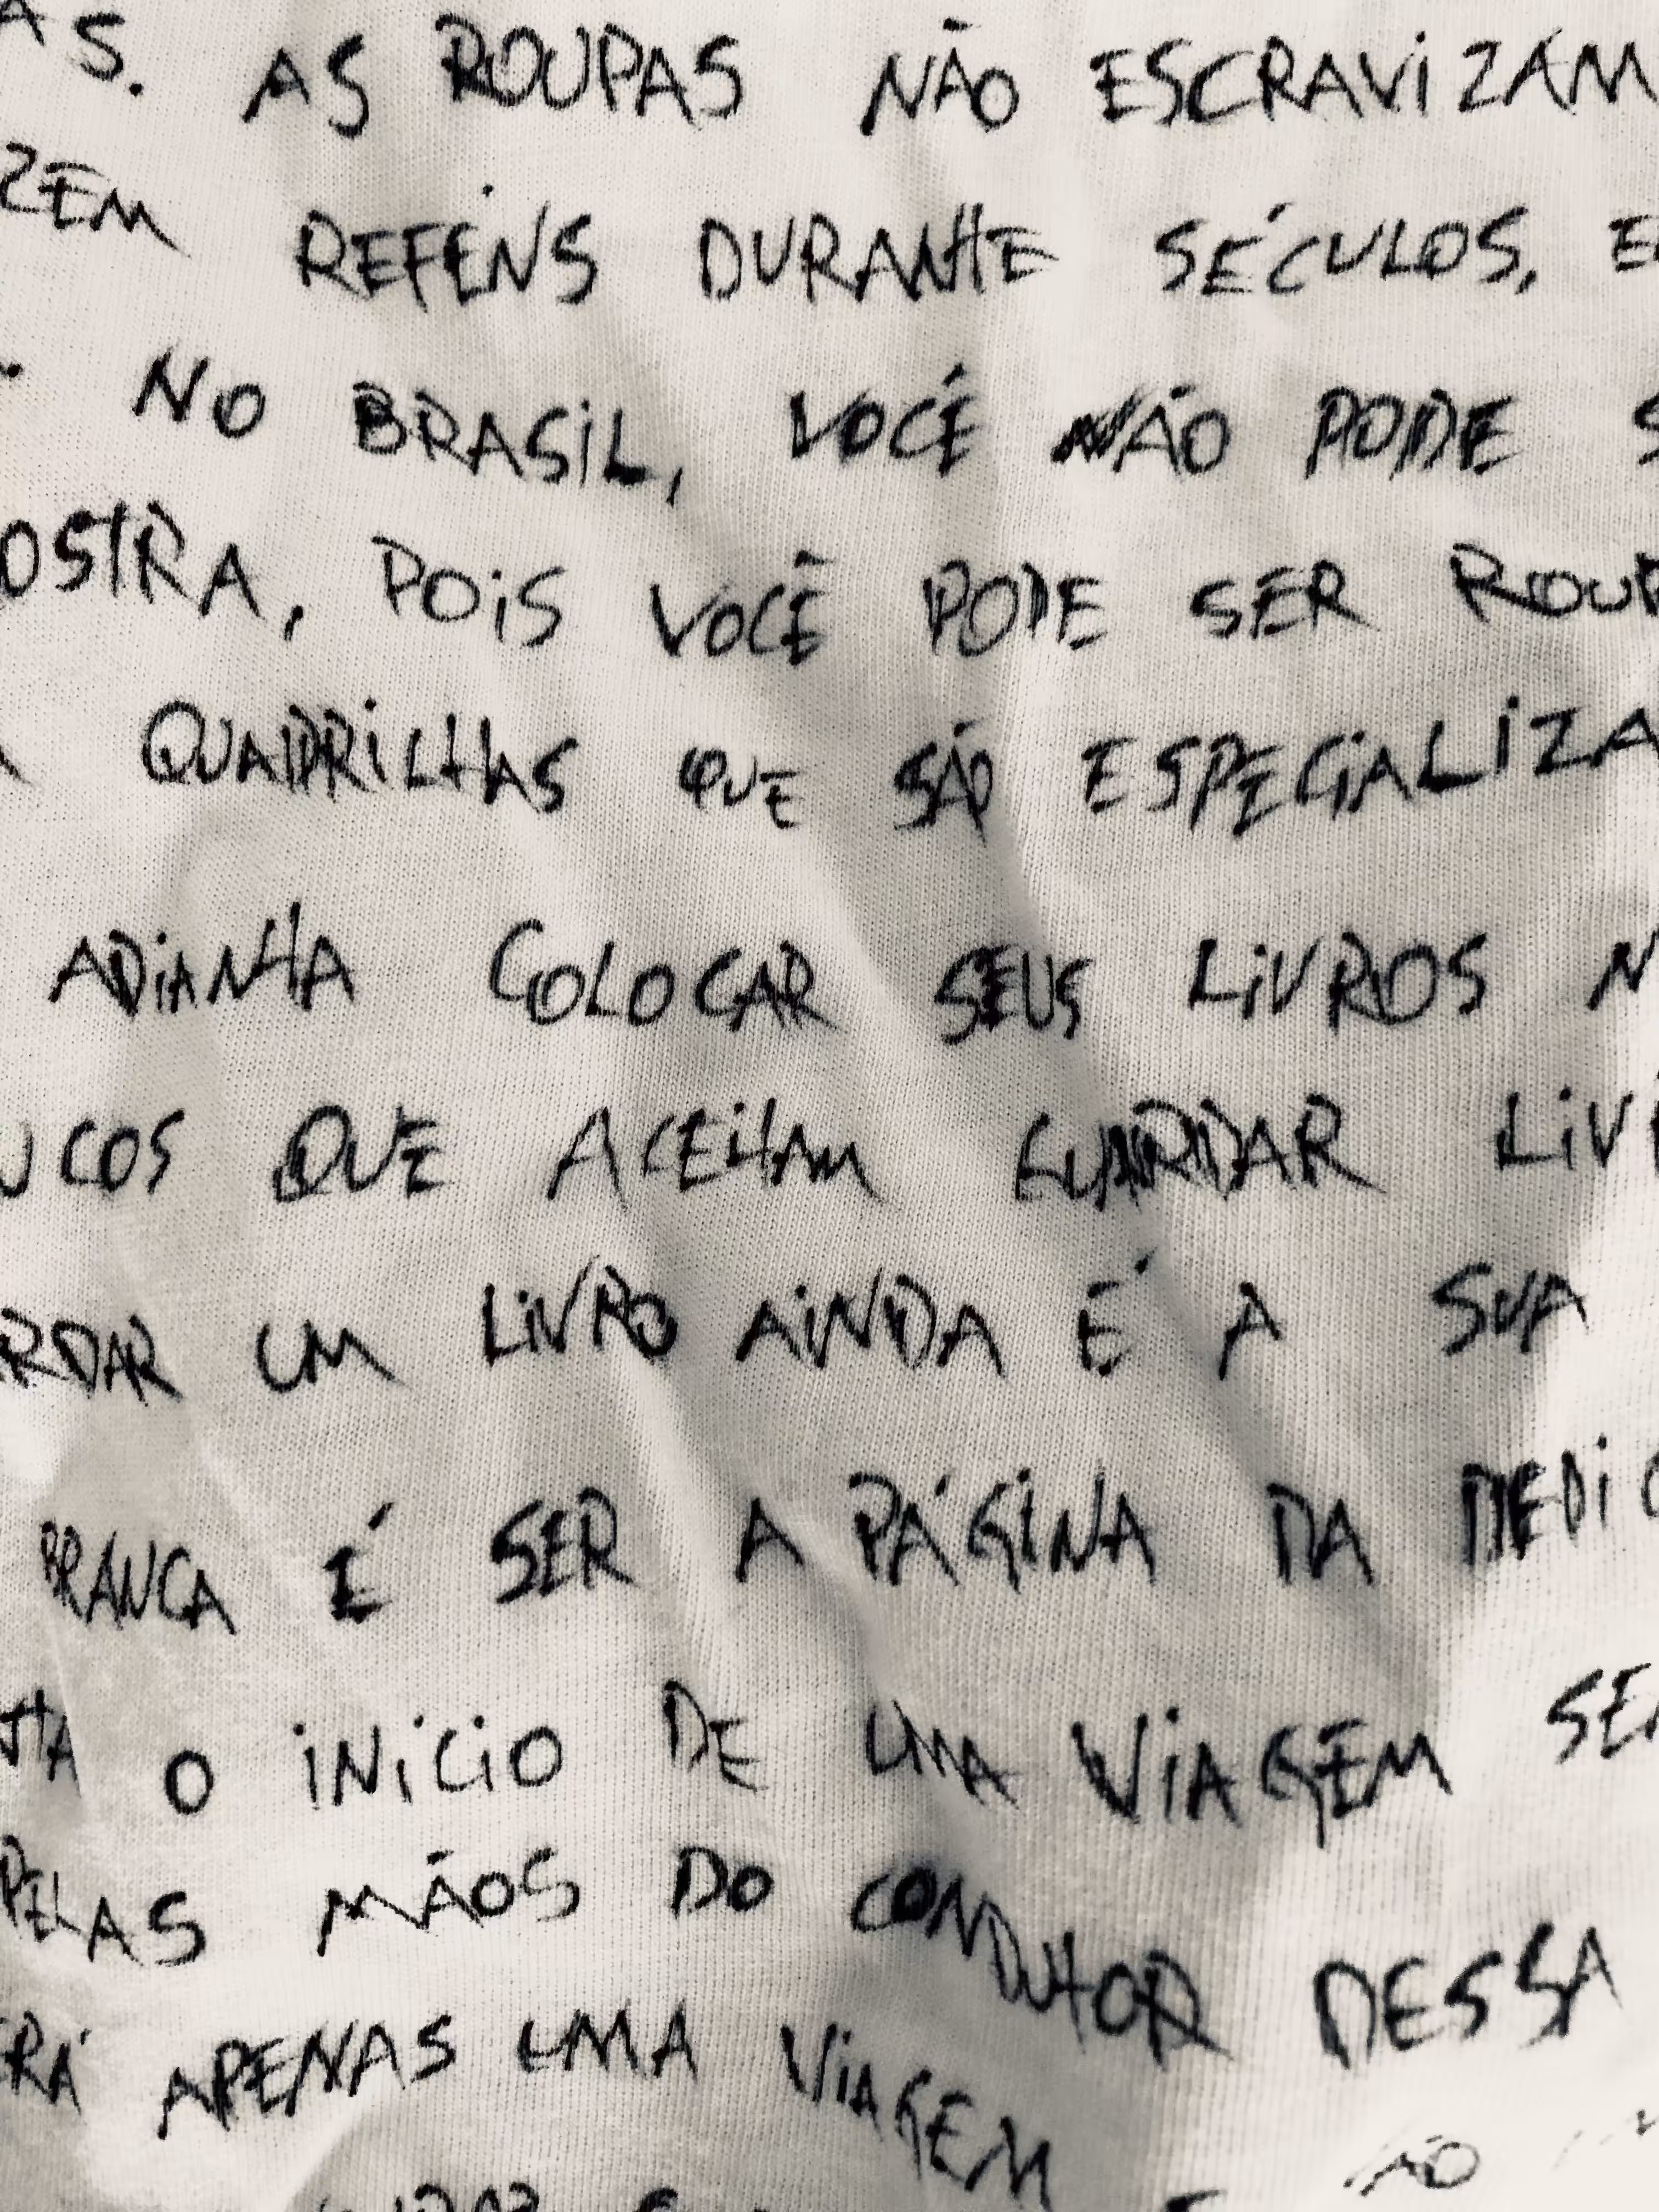 AS. AS ROUPAS NÃO ESCRAVIZAM
ZEM REFÉNS DURANTE SÉCULOS, E
NO BRASIL, VOCÊ NÃO PODE S
OSTRA, POIS VOCÊ PODE SER ROUP
QUADRILHAS QUE SÃO ESPECIALIZA
ADIANTA COLOCAR SEUS LIVROS N
UCOS QUE ACEITAM GUARDAR LIV
RDAR UM LIVRO AINDA É A SUA
BRANCA É SER A PÁGINA DA MEDIC
TA O INÍCIO DE UMA VIAGEM SE
PELAS MÃOS DO CONDUTOR DESSA
ERÁ APENAS UMA VIAGEM
ÃO